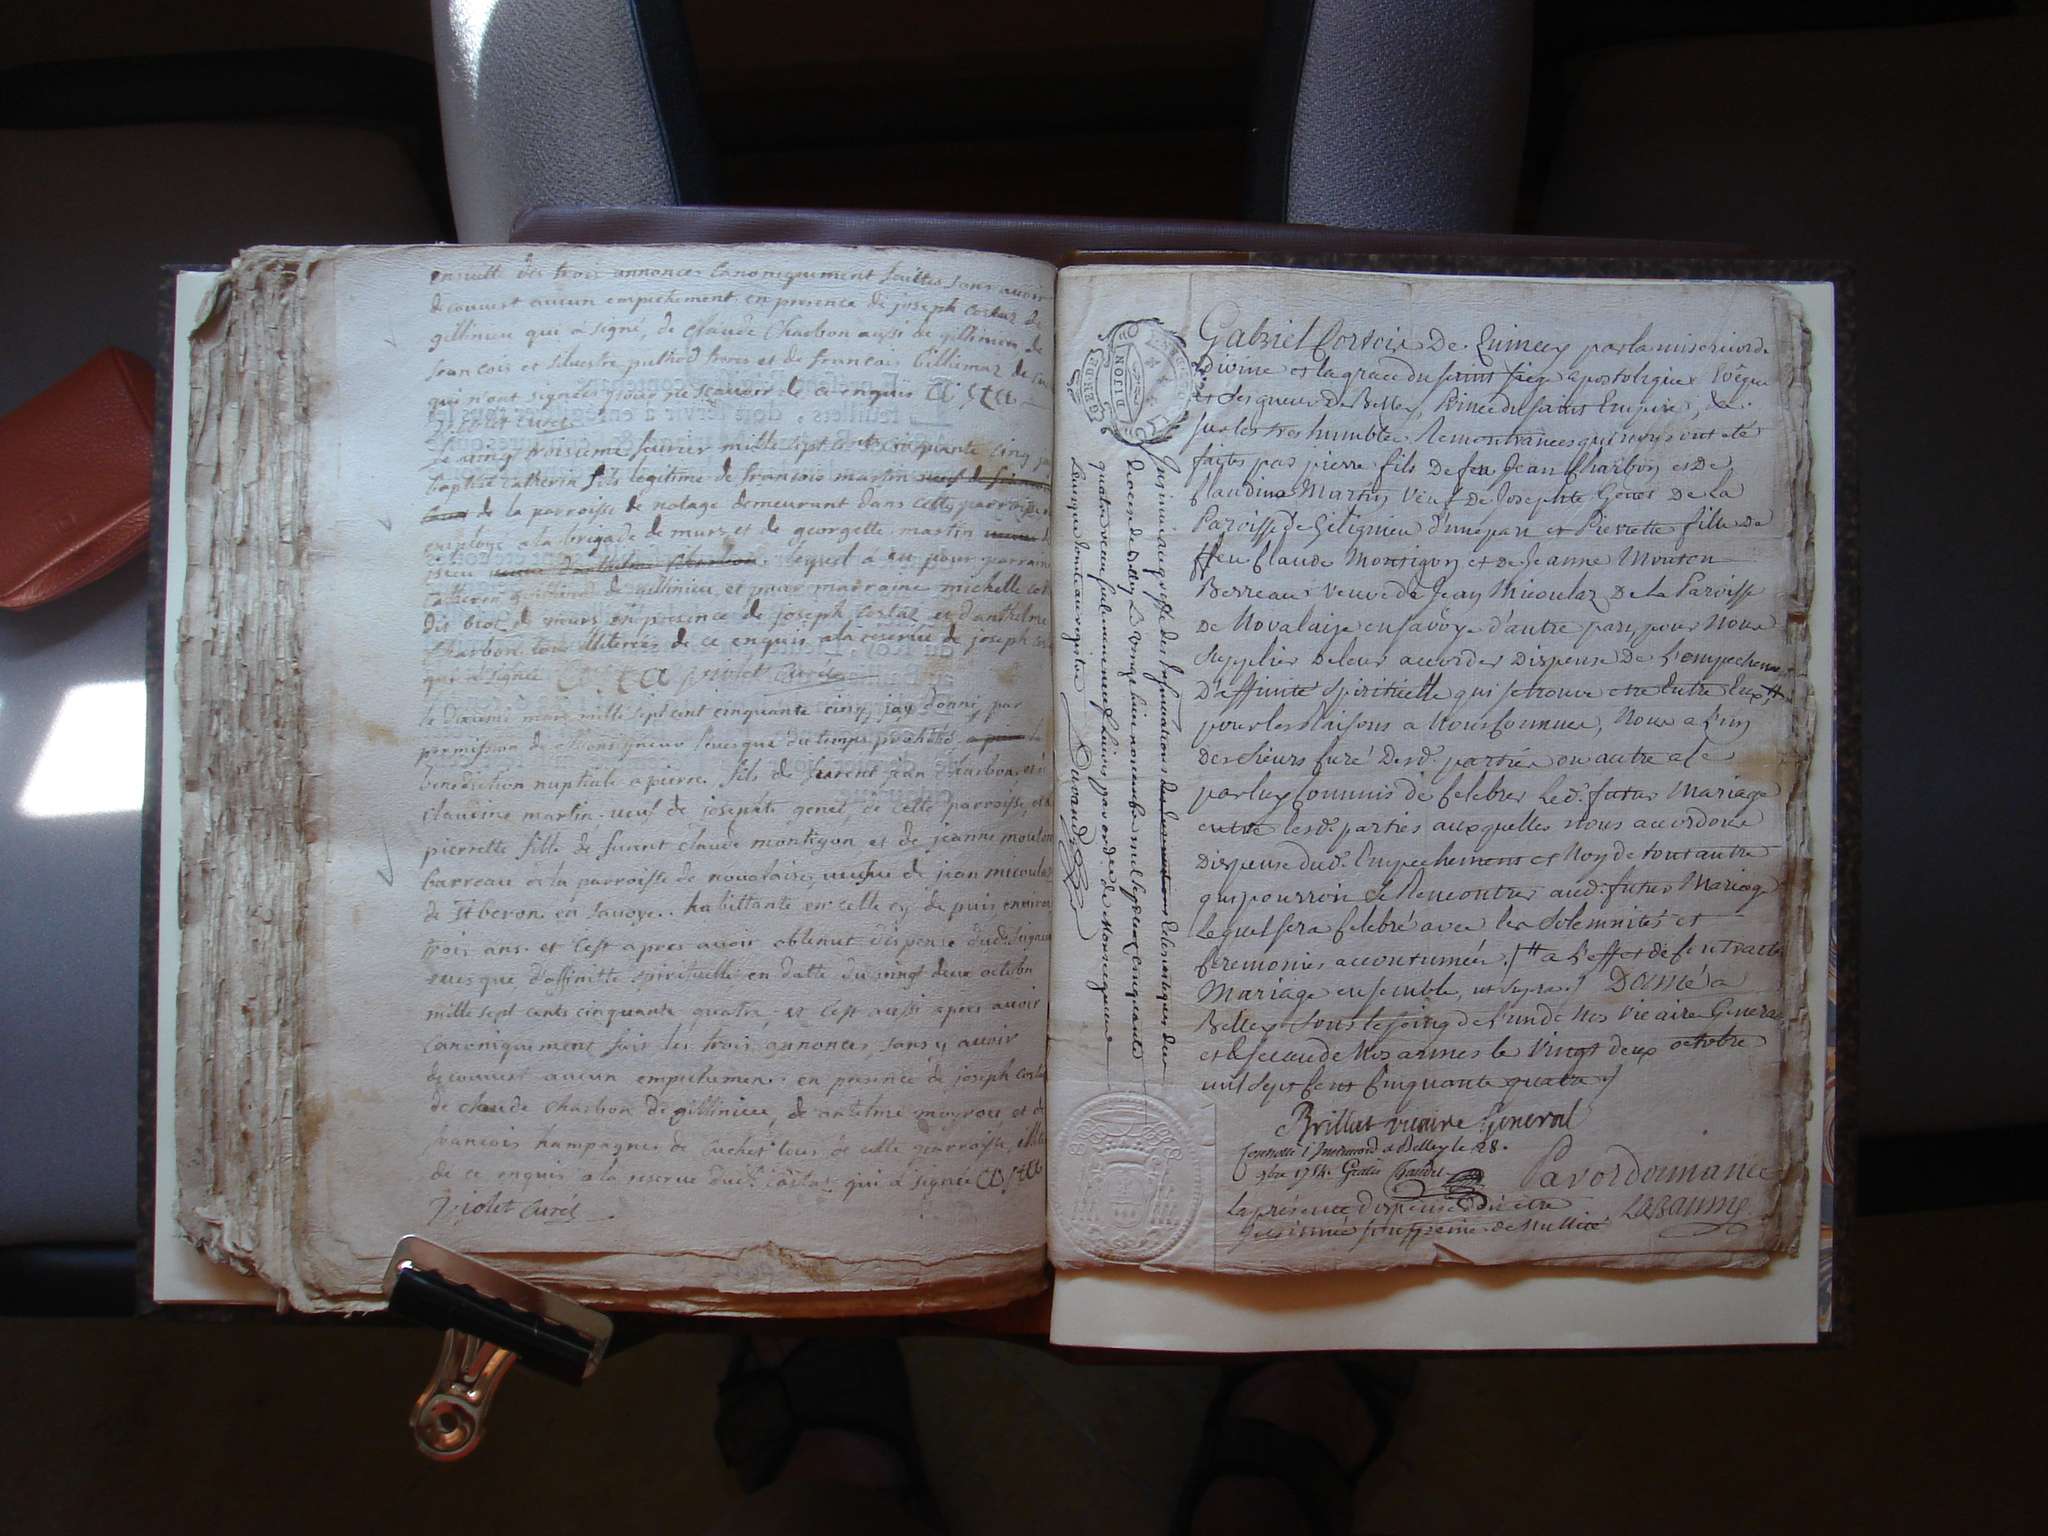 ensuitte des trois annonces canoniquement faittes sans avoir
decouvert aucun empechement en presence de joseph costaz de
gillinieu qui a signé, de claude Charbon aussi de gillinieu, de
francois et silvestre puthod freres et de francois billiemaz de
qui n'ont signées pour ne scauoir de ce enquis Costa
Violet Curé
Le vingt troisieme feurier mille sept cents cinquante cinq
baptisé catherin fils legitime de francois martin
de la parroisse de notage demeurant dans cette parroisse
employé a la brigade de murs et de georgette martin
lequel a eu pour parrain
catherin guichard de gillinieu et pour marraine michelle
dit biot de murs en presence de joseph costaz et d'anthelme
Charbon tous illiterés de ce enquis a la reserve de joseph
qui a signé Costa Violet Curé
le douzieme mars mille sept cent cinquante cinq jay donné par
permission de Monseigneur l'evesque du temps prohibé la
benediction nuptiale a pierre fils de furent jean Charbon et
claudine martin veuf de josephte genet de cette parroisse, et
pierrette fille de furent claude montigon et de jeanne mouton
barreau de la parroisse de noualaise, ueufue de jean micoulaz
de st beron en sauoye habittante en celle cy de puis environ
trois ans. et c'est apres avoir obtenut dispense dud. seigneur
euesque d'affinitté spirituelle en datte du uingt deux octobre
mille sept cents cinquante quatre, et c'est aussi apres auoir
canoniquement fait les trois annonces sans y auoir
decouvert aucun empechement en presence de joseph costaz
de claude charbon de gillinieu, de antelme et de
francois hampagnes de Cuchet tous de cette parroisse, illiterés
de ce enquis a la reserve dud. Costaz qui a signé Costa
Violet Curé
GEN. DE DIJON
Insinué au greffe des Insinuations Eclesiastiques du
diocese de Belley Le Vingt huit novembre mil sept cent cinquante
quatre recu seulement neuf livres par ordre de Monseigneur
Leveque Comte au registre Duvand
Gabriel Cortois De Quincey par la misericorde
Divine et la grace du saint siege apostolique Evêque
et seigneur De Belley, Prince du saint Empire, &c.
sur les tres humbles Remontrances qui nous ont eté
faites par pierre fils de feu Jean Charbon et de
Claudine Martin veuf de Josephte Genet De La
Paroisse de Gilignieu d'une part et Pierrette fille de
feu Claude Montigon et de Jeanne Mouton
Berreau veuve de Jean Micoulaz De La Paroisse
de Novalaize en savoye d'autre part, pour Nous
supplier de leur accorder Dispense de l'empechement
D'affinité spirituelle qui se trouve etre Entre Eux #
pour les Raisons a Nous connues, Nous a l'un
Des sieurs Curé Desd. parties ou autre de
par luy commis de Celebrer Led. futur Mariage
entre lesd. parties auxquelles nous accordons
Dispense dud. Empechement et Non de tout autre
qui pourroit se Rencontrer aud. futur Mariage
Lequel sera Celebré avec les solemnités et
Ceremonies accoutumées. # a l'effet de Contracter
Mariage ensemble, ut supra Donné a
Belley sous le seing de l'un de Nos Vicaires Generaux
et le sceau de Nos armes le Vingt deux octobre
mil sept Cent Cinquante quatre
Brillat vicaire General
Controllé a Belley le 28.
9bre 1754. Gratis
Par ordonnance
LaBaume
La présente dispense doit etre
Insinuée sous peine de Nullité